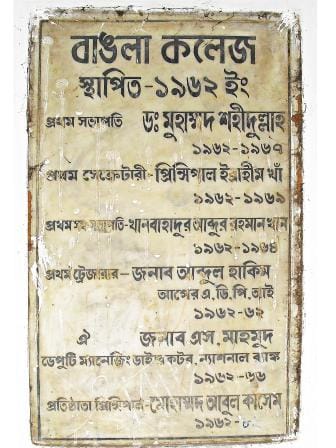 বাঙলা কলেজ
স্থাপিত-১৯৬২ ইং
প্রথম সভাপতি ডঃ মুহাম্মদ শহীদুল্লাহ
১৯৬২-১৯৬৭
প্রথম সেক্রেটারী- প্রিন্সিপাল ইব্রাহীম খাঁ
১৯৬২-১৯৬৯
প্রথম সহ সভাপতি-খানবাহাদুর আব্দুর রহমান খান
১৯৬২-১৯৬৪
প্রথম ট্রেজারার- জনাব আব্দুল হাকিম
আগের এ,ডি,পি,আই
১৯৬২-৬২
ঐ জনাব এস, মাহমুদ
ডেপুটি ম্যানেজিং ডাইরেক্টর, ন্যাশনাল ব্যাঙ্ক
১৯৬২-৬৬
প্রতিষ্ঠাতা প্রিন্সিপাল-মোহাম্মদ আবুল কাসেম